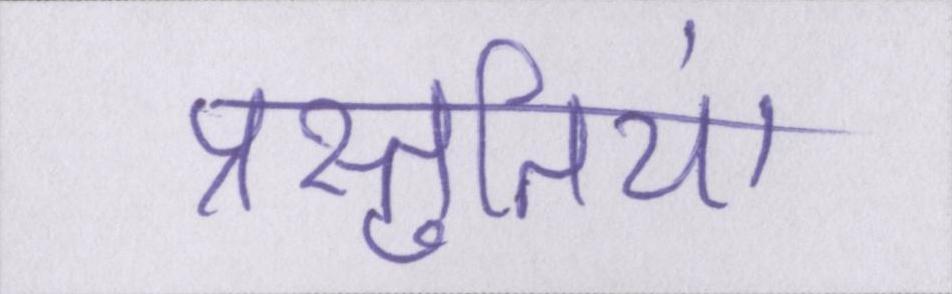 प्रस्तुतियां